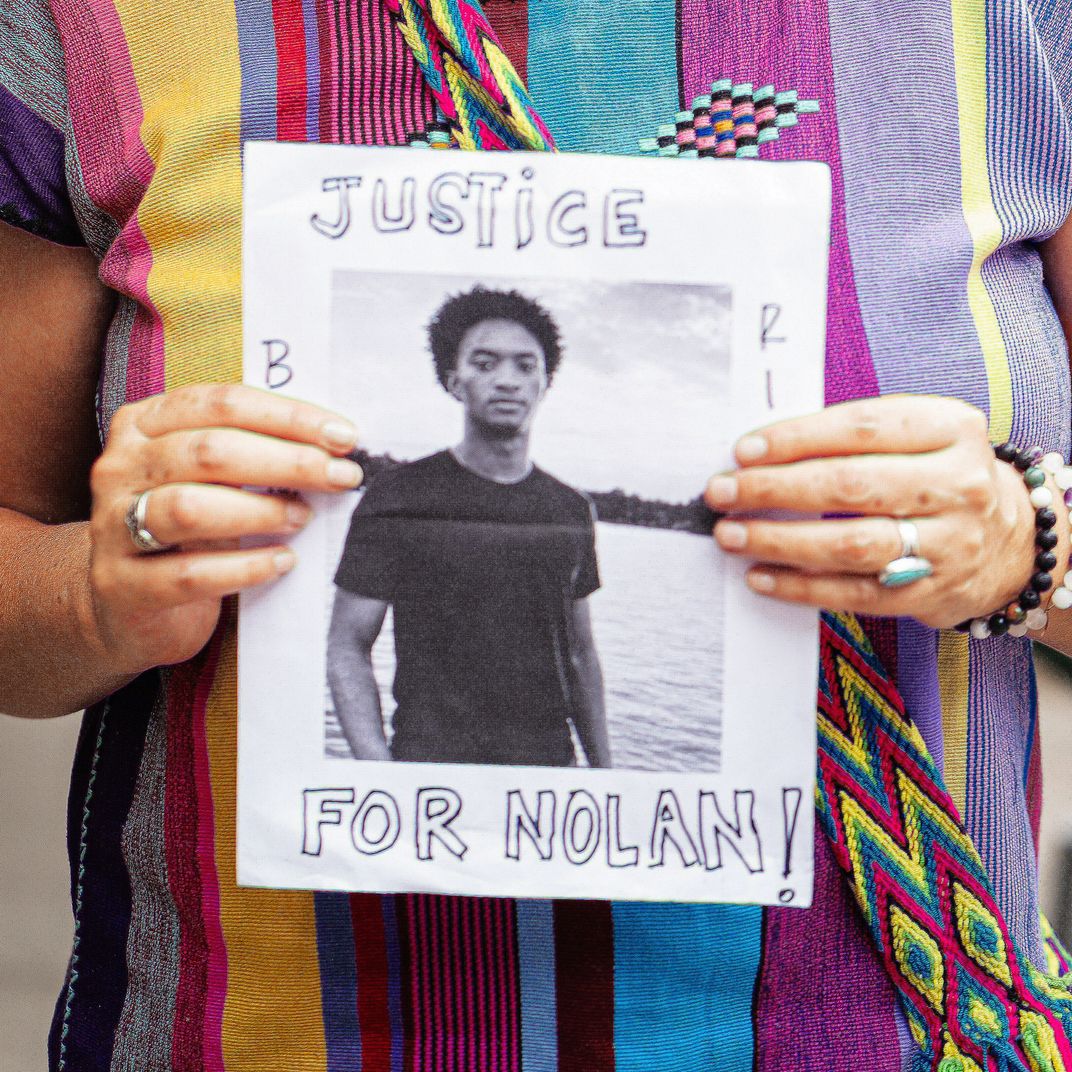 JUSTiCE
B
R
I
FOR NOLAN!